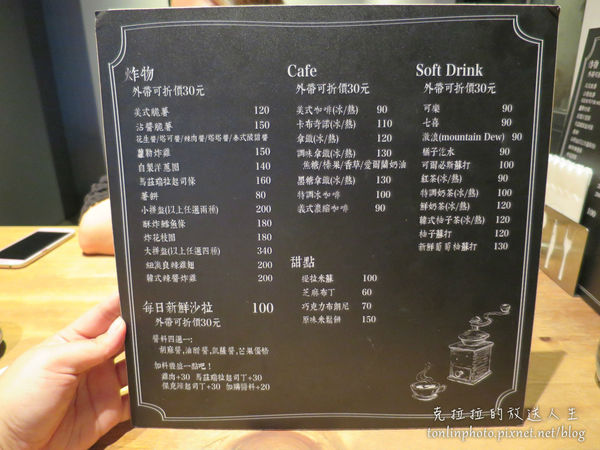 炸物
外帶可折價30元
美式脆薯 120
沾醬脆薯 150
花生醬/塔可醬/辣肉醬/塔塔醬/泰式酸甜醬
蘿勒炸雞 150
自製洋蔥圈 140
馬茲瑞拉起司條 160
薯餅 80
小拼盤(以上任選兩種) 200
酥炸鱈魚條 180
炸花枝圈 180
大拼盤(以上任選四種) 340
紐澳良辣雞翅 200
韓式辣醬炸雞 200
每日新鮮沙拉 100
外帶可折價30元
醬料四選一:
胡麻醬,油醋醬,凱薩醬,芒果優格
加料後搶一點吧!
雞肉+30 馬茲瑞拉起司丁+30
傑克綜起司丁+30 加購醬料+20
Cafe
外帶可折價30元
美式咖啡(冰/熱) 90
卡布奇諾(冰/熱) 110
拿鐵(冰/熱) 120
調味拿鐵(冰/熱) 130
焦糖/榛果/香草/愛爾蘭奶油
黑糖拿鐵(冰/熱) 130
特調冰咖啡 100
義式濃縮咖啡 90
甜點
提拉米蘇 100
芝麻布丁 60
巧克力布朗尼 70
原味米鬆餅 150
Soft Drink
外帶可折價30元
可樂 90
七喜 90
激浪(mountain Dew) 90
橘子汽水 90
可爾必斯蘇打 100
紅茶(冰/熱) 90
特調奶茶(冰/熱) 100
鮮奶茶(冰/熱) 110
韓式柚子茶(冰/熱) 120
柚子蘇打 120
新鮮葡萄柚蘇打 130
克拉拉的放送人生
tonlinphoto.pixnet.net/blog